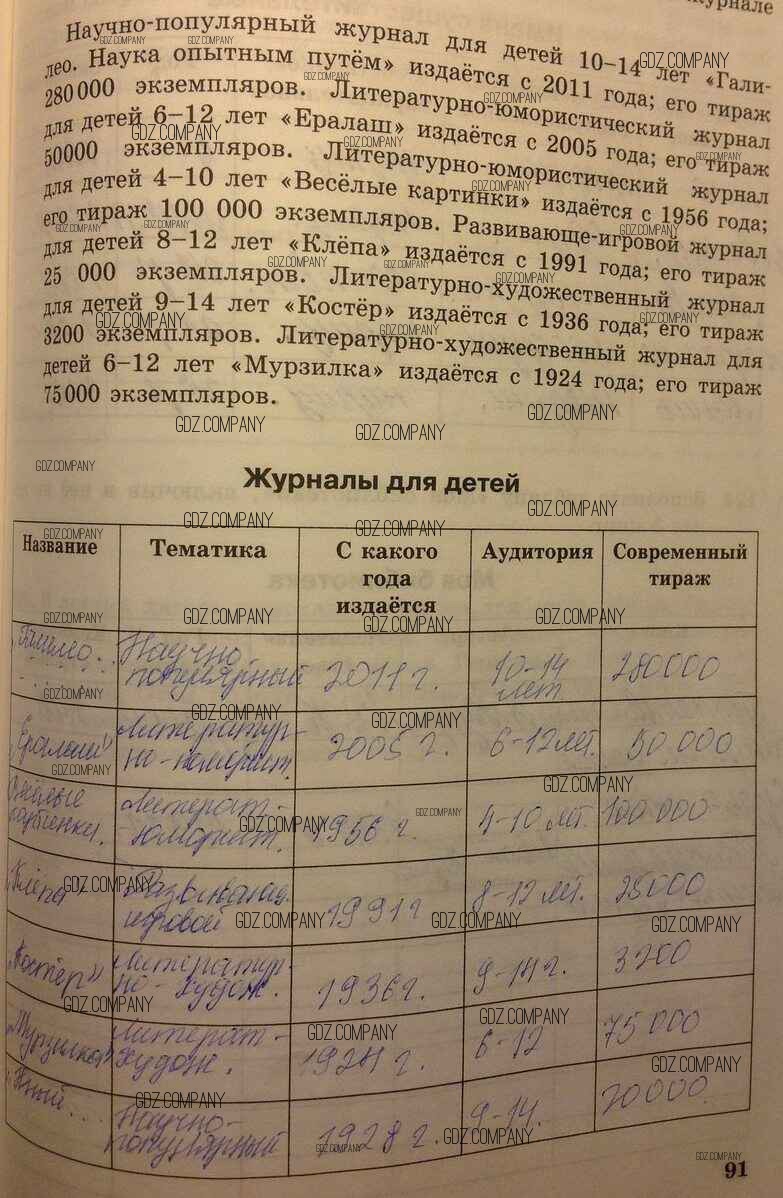 журнале
Научно-популярный журнал для детей 10–14 лет «Гали-
лео. Наука опытным путём» издаётся с 2011 года; его тираж
280 000 экземпляров. Литературно-юмористический журнал
для детей 6–12 лет «Ералаш» издаётся с 2005 года; его тираж
50000 экземпляров. Литературно-юмористический журнал
для детей 4–10 лет «Весёлые картинки» издаётся с 1956 года;
его тираж 100 000 экземпляров. Развивающе-игровой журнал
для детей 8–12 лет «Клёпа» издаётся с 1991 года; его тираж
25 000 экземпляров. Литературно-художественный журнал
для детей 9–14 лет «Костёр» издаётся с 1936 года; его тираж
3200 экземпляров. Литературно-художественный журнал для
детей 6–12 лет «Мурзилка» издаётся с 1924 года; его тираж
75 000 экземпляров.
GDZ.COMPANY
Журналы для детей
Название Тематика С какого года издаётся Аудитория Современный тираж
„Галилео... Научно популярный 2011 г. 10-14 лет 280000
„Ералаш" Литературно-юморист. 2005 г. 6-12 лет. 50 000
Весёлые картинки. Литерат-юморист. 1956 г. 4-10 лет. 100 000
„Клёпа" Развивающ. игровой 1991 г 8-12 лет. 25000
„Костёр" Литературно-худож. 1936 г. 9-14 г. 3200
„Мурзилка" Литерат-худож. 1924 г. 6-12 75 000
"Юный... Научно-популярный 1928 г. 9-14. 20000.
91